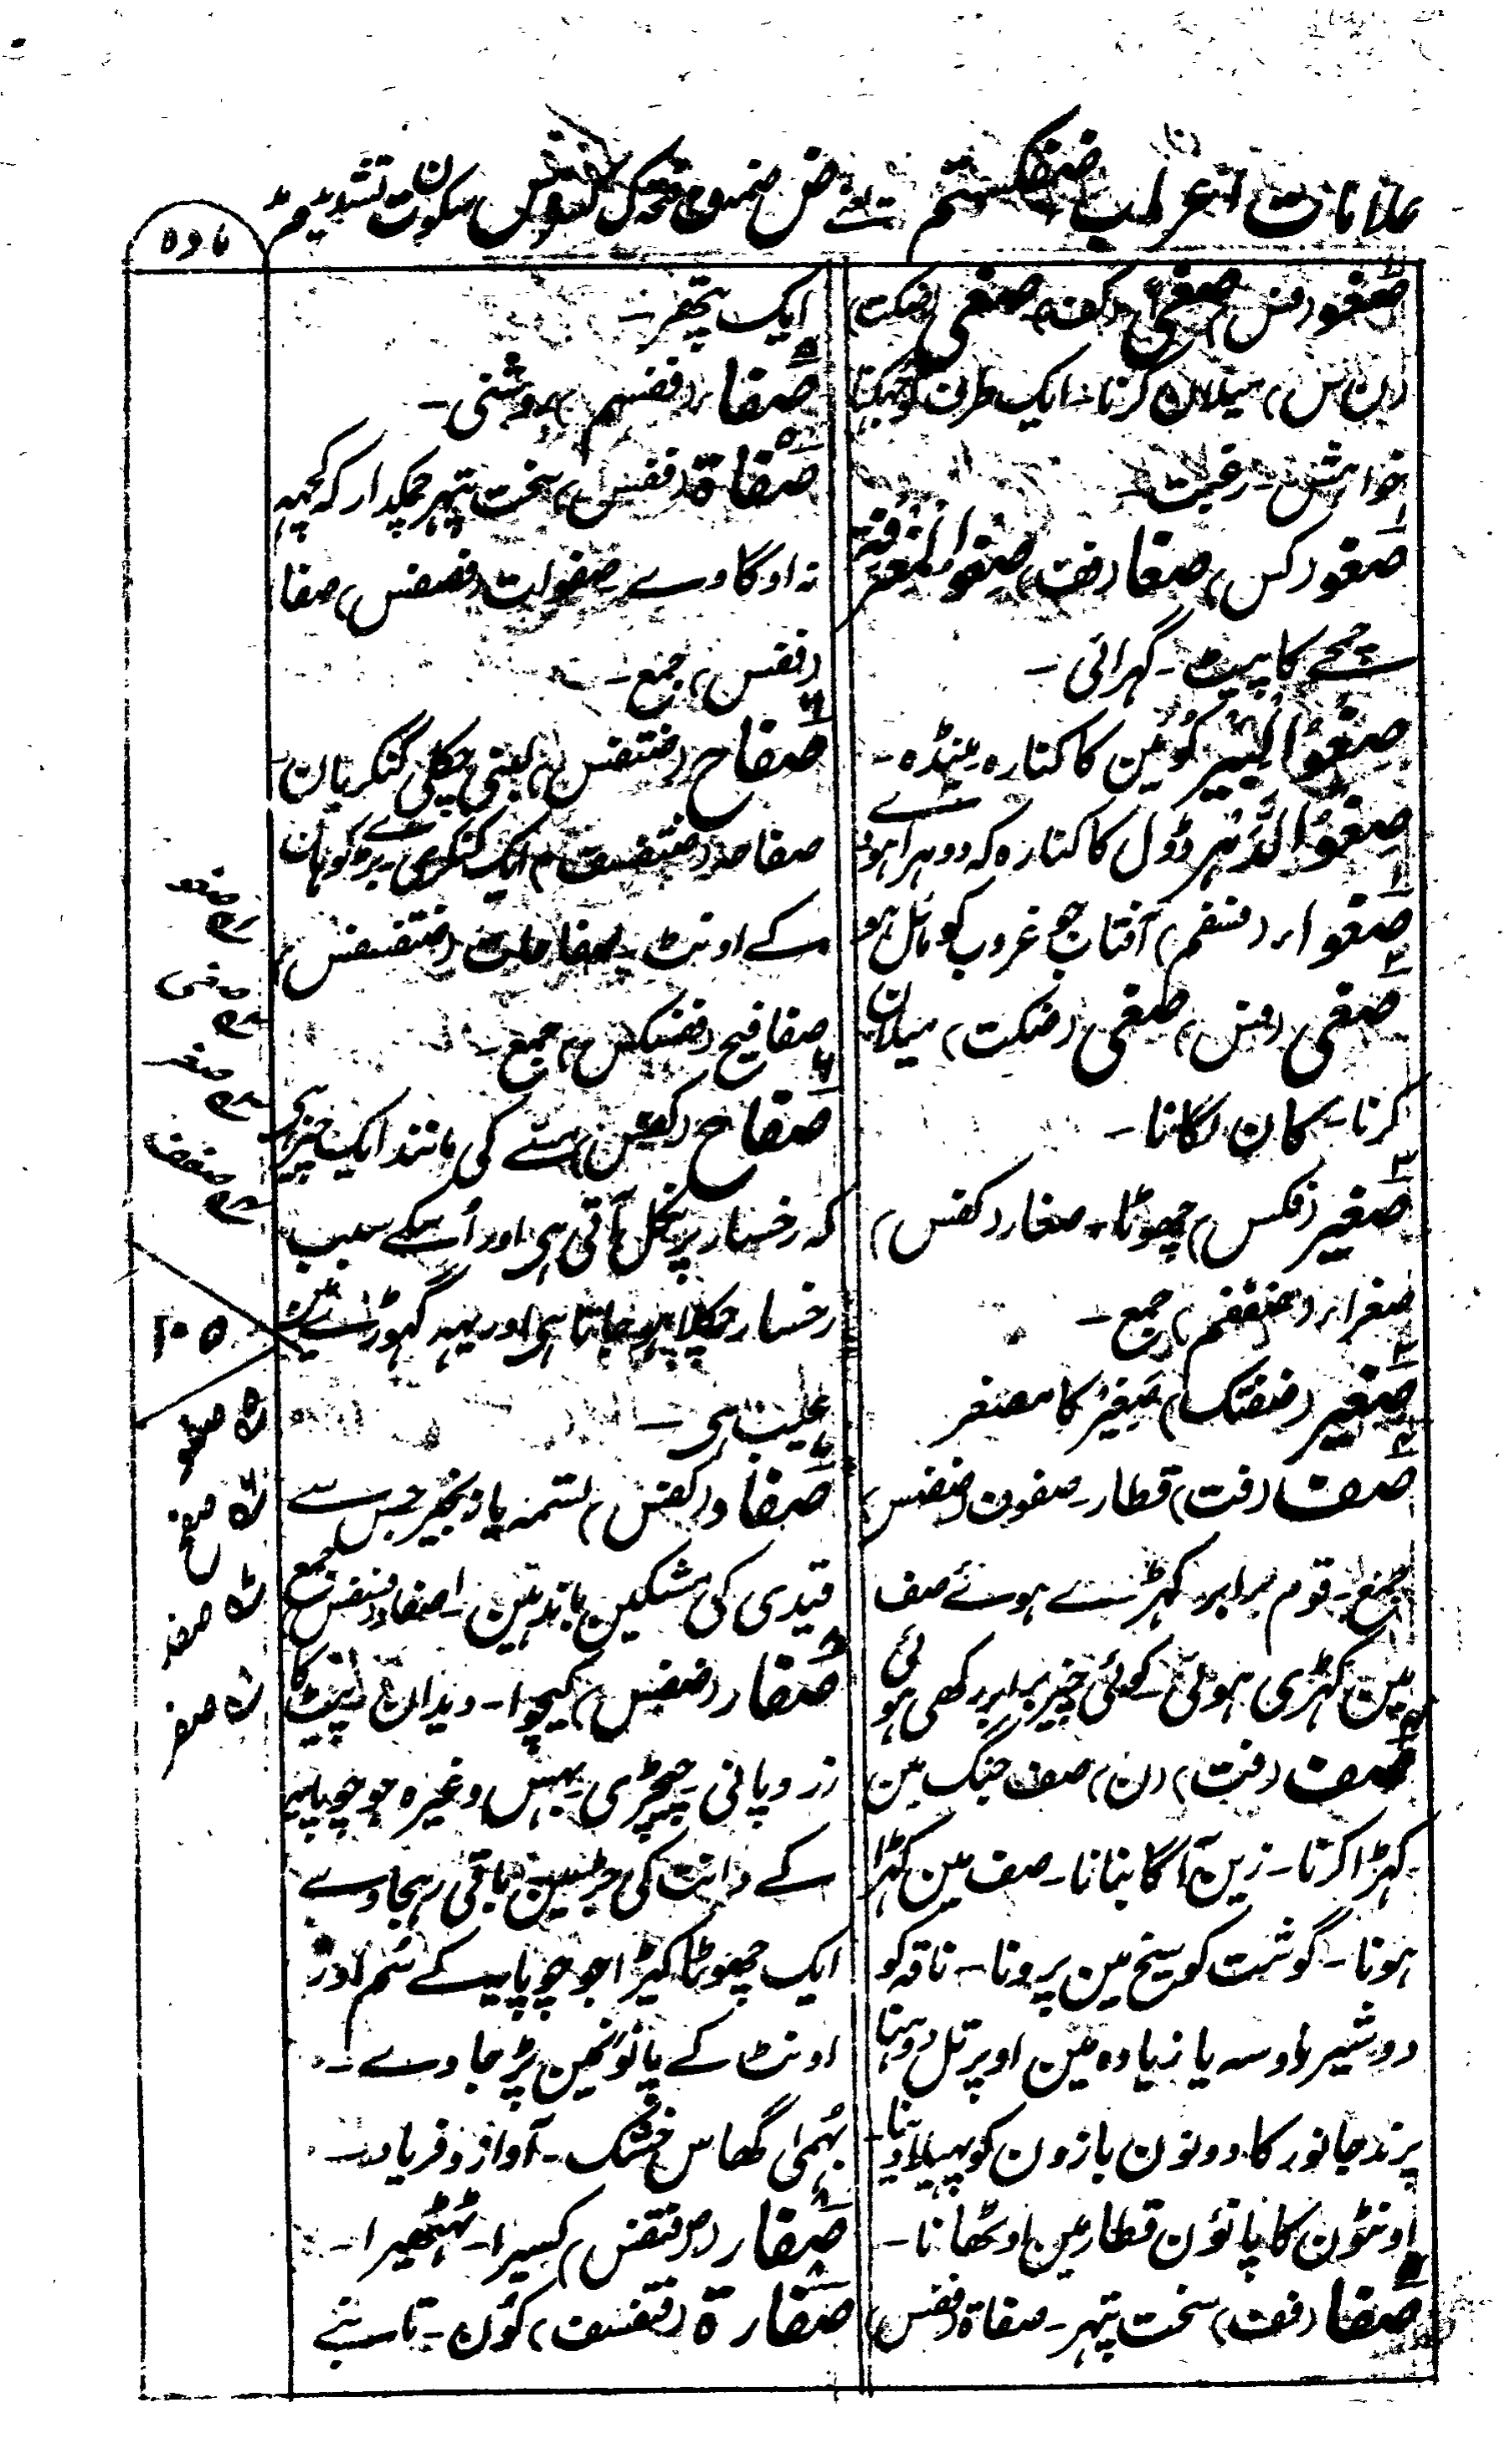 علامات اعراب ضفکستم یعنے ض ضمہ ف فتحہ ک کسرہ س سکون ت تشدید م مد
مادہ
صغو (فس) صغیً (کف) صغی (ضکت)
(ن س) میلان کرنا۔ ایک طرف کو جھکنا
خواہش۔ رغبت۔
صغو (کس) صغا (فت) صغو المغرفتہ
چمچے کا پیٹ۔ گہرائی۔
صغو البیر کوئین کا کنارہ مینڈہ۔
صغو الدلو ڈول کا کنارہ کہ دوہرا ہووے
صغواء (فسفم) آفتاب جو غروب کو مائل ہو
صغی (فس) صغی (ضکت) میلان
کرنا۔ کان لگانا۔
صغیر (فکس) چھوٹا۔ صغار (کفس)
صغراء (ضففم) جمع۔
صغیر (ضفتک) صغیر کا مصغر
صف (فت) قطار۔ صفوف (ضضس)
جمع۔ قوم برابر کہڑے ہوئے صف
مین کہڑی ہوئی۔ کوئی چیز برابر رکھی ہوئی
صف (فت) (ن) صف جنگ مین
کہڑا کرنا۔ زین آگا بنانا۔ صف مین کہڑا
ہونا۔ گوشت کو سیخ مین پرونا۔ ناقہ کو
دوشیر ہاوسہ یا زیادہ مین اوپر تل دوہنا
پرند جانور کا دونون بازون کو پہیلا دینا۔
اونٹون کا پانؤن قطار مین اوٹھانا۔
صفا (فف) سخت پتہر۔ صفاۃ (ففس)
ایک پتھر۔
صفاء (ففم) روشنی۔
صفاۃ (ففس) سخت پتہر چمکدار کہ کچہہ
نہ اوگاوے۔ صفوات (ففس) صفا
(ففس) جمع۔
صفاح (ضتفس) یعنی چکلی کنکریان
صفاحہ (ضتفسف) ایک کنکری۔ بڑے کوہان
کے اونٹ۔ صفاحات (ضتفسفس)
صفافیح (ففسکس) جمع۔
صفاح (کفس) مسّے کی مانند ایک چیز ہی
کہ رخسار پر نکل آتی ہی اور اُسکے سبب
رخسار چکلا ہو جاتا ہی اور یہہ گہوڑے مین
عیب ہی۔
صفاد (کفس) تسمہ یا زنجیر جس سے
قیدی کی مشکین باندہین۔ اصفاد (فسفس) جمع
صفار (ضفس) کیچوا۔ دیدان پیٹ کا
زرد پانی۔ چیچڑی بہس وغیرہ جو چوپایہ
کے دانت کی جڑمین باقی رہجاوے
ایک چھوٹا کیڑا جو چوپایہ کے سُم اور
اونٹ کے پانؤ نمین پڑ جاوے۔
بُہمٰی گھاس خشک۔ آواز و فریاد۔
صفار (فتفس) کسیرا۔ ٹہٹھیرا۔
صفارۃ (فتفسف) کُون۔ تانبے
صغو
صغی
صغر
صفف
۱۰۵
صفو
صفح
صفد
صفر